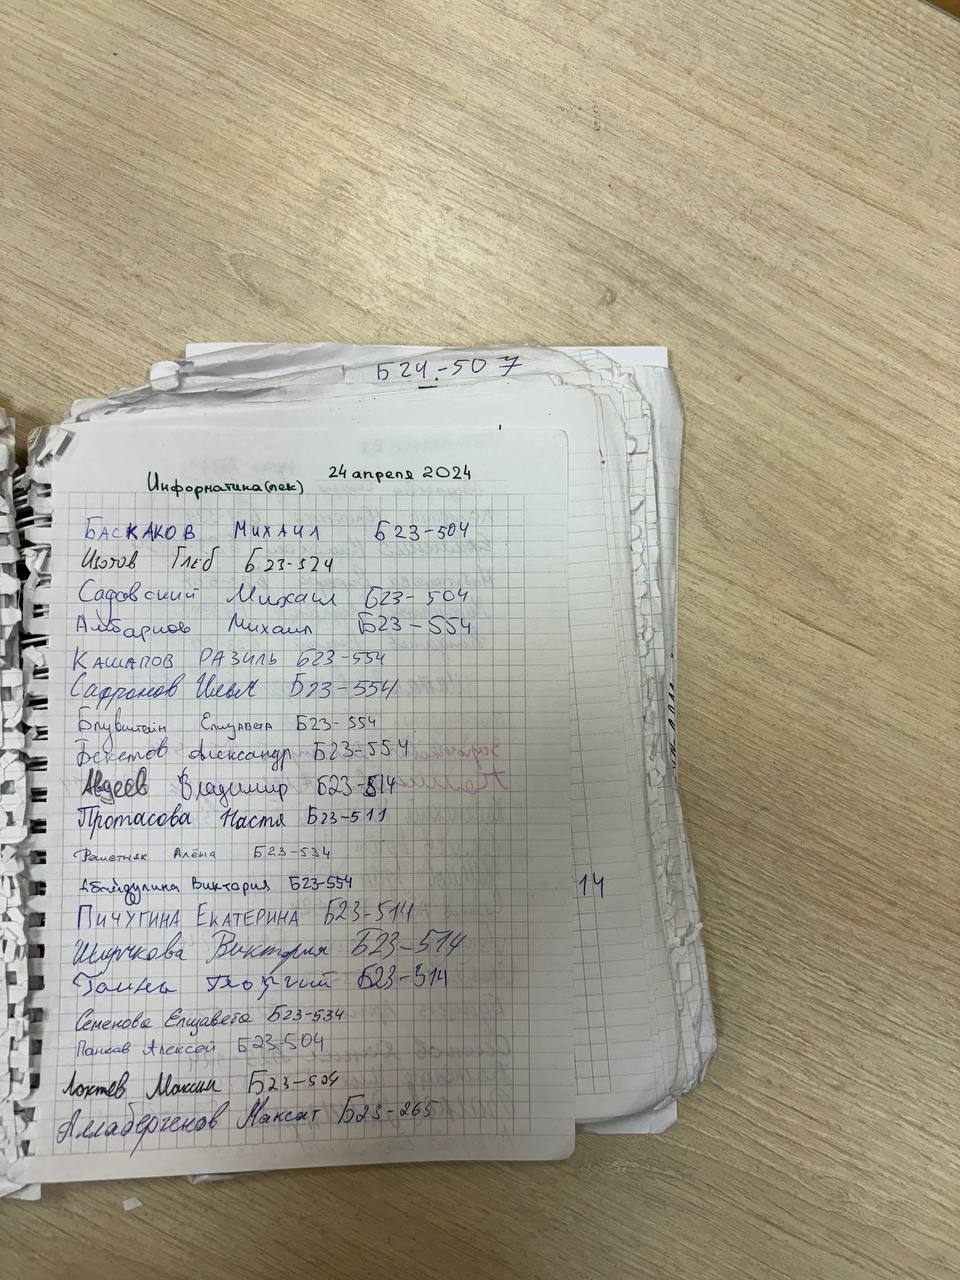 Б24-507
Информатика(лек) 24 апреля 2024
БАСКАКОВ МИХАИЛ Б23-504
Изотов Глеб Б23-524
Садовский Михаил Б23-504
Амбарцов Михаил Б23-554
КАШАПОВ РАЗИЛЬ Б23-554
Сафронов Илья Б23-554
Блувштейн Елизавета Б23-554
Бекетов Александр Б23-554
Авдеев Владимир Б23-514
Протасова Настя Б23-511
Решетняк Алёна Б23-534
Абайдулина Виктория Б23-554
14
ПИЧУГИНА ЕКАТЕРИНА Б23-514
Ширчкова Виктория Б23-514
Б23-514
Семенова Елизавета Б23-534
Панков Алексей Б23-504
Локтев Максим Б23-504
Аллабергенов Максат Б23-265